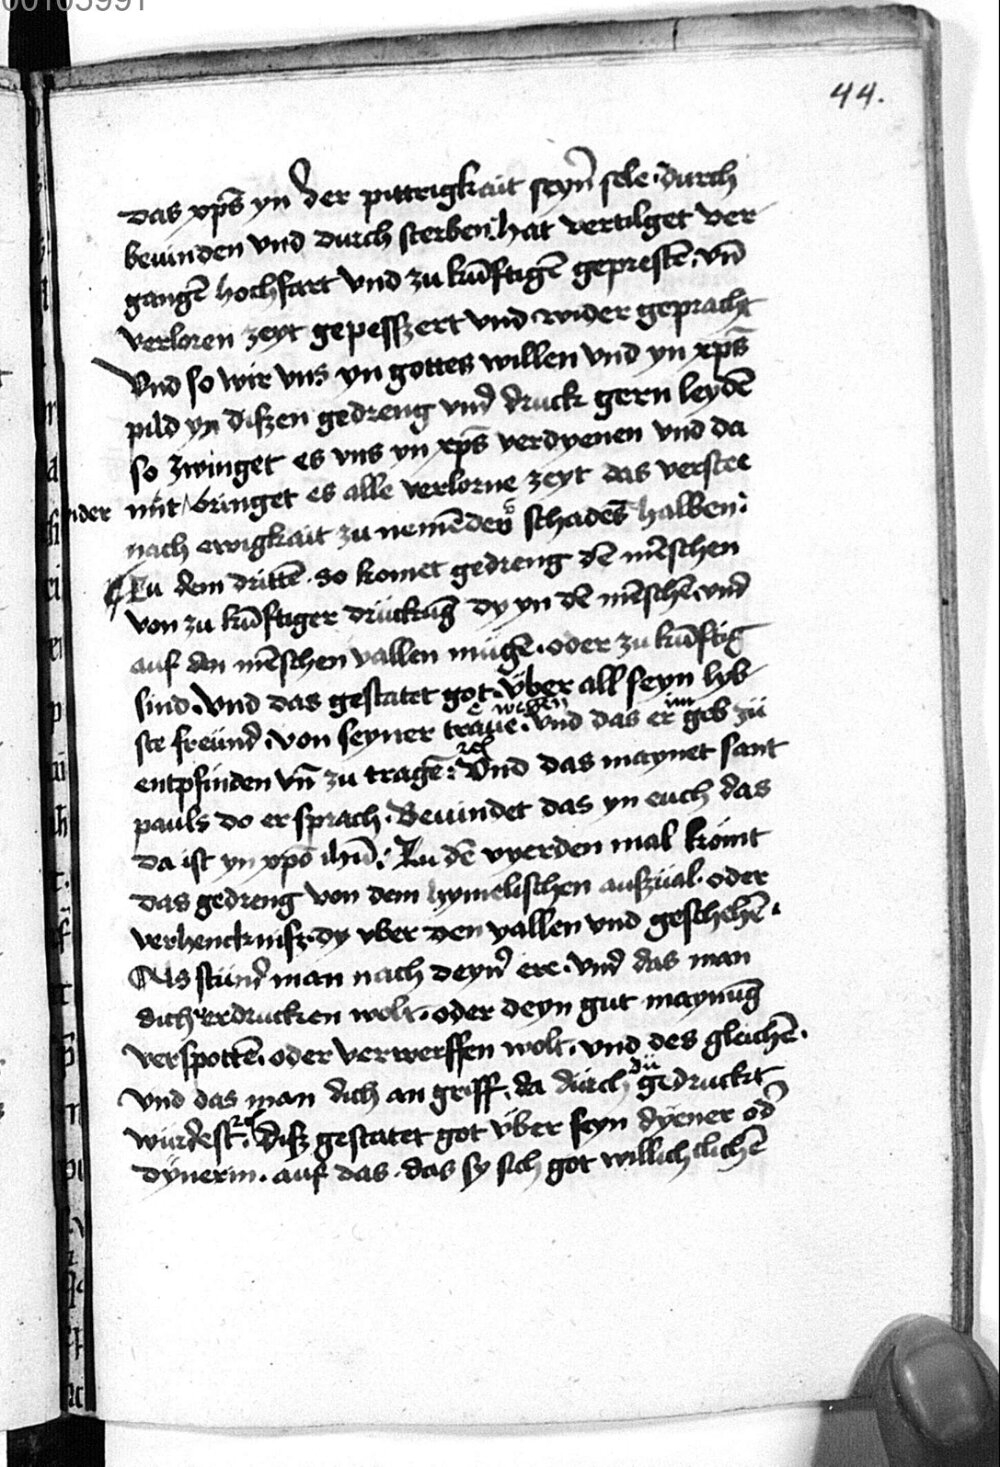 00105991
44.
das xp̄s yn der pittrigkait seyn̄ sele durch
beuinden vnd durch sterben hat vertilget ver
gangē hochfart vnd zu kūftigē geprestē. vn̄
verloren zeyt gepesszert vnd wider gepracht
Vnd so wir vns yn gottes willen vnd yn xp̄s
pild yn diszen gedreng vnd druck gern leydē
so zwinget es vns yn xp̄s verdyenen vnd da
mit bringet es alle verlorne zeyt das verstee
wider
nach ewigkait zu nemēder schadēs halben.
Zu dem drittē. so komet gedreng dē mēschen
von zu kūftiger drückūg dy yn dē mēschē vnd
auf den mēschen vallen mügē. oder zu kūftig
sind. vnd das gestatet got. über all seyn lyb
ste freünd. von seyner e wigen traue. vnd das er im geb zü
entpfinden vn̄ zu tragē. Vnd das maynet sant
pauls do er sprach. Beuindet das yn euch das
da ist yn xp̄o ih̄u. Zu dē vyerden mal kömt
das gedreng von dem hymelischen aufzüal. oder
verhencknisz dy vber den vallen vnd geschehē.
Als stünd man nach deyn̄ ere. vnd das man
dich erdrucken wolt. oder deyn gut maynūg
verspottē. oder verwerffen wolt. vnd des gleichē.
vnd das man dich an griff. da dürch dü gedruckt
würdest. disz gestatet got über seyn dyener od̄
dynerin. auf das. das sy sich got willichclichē